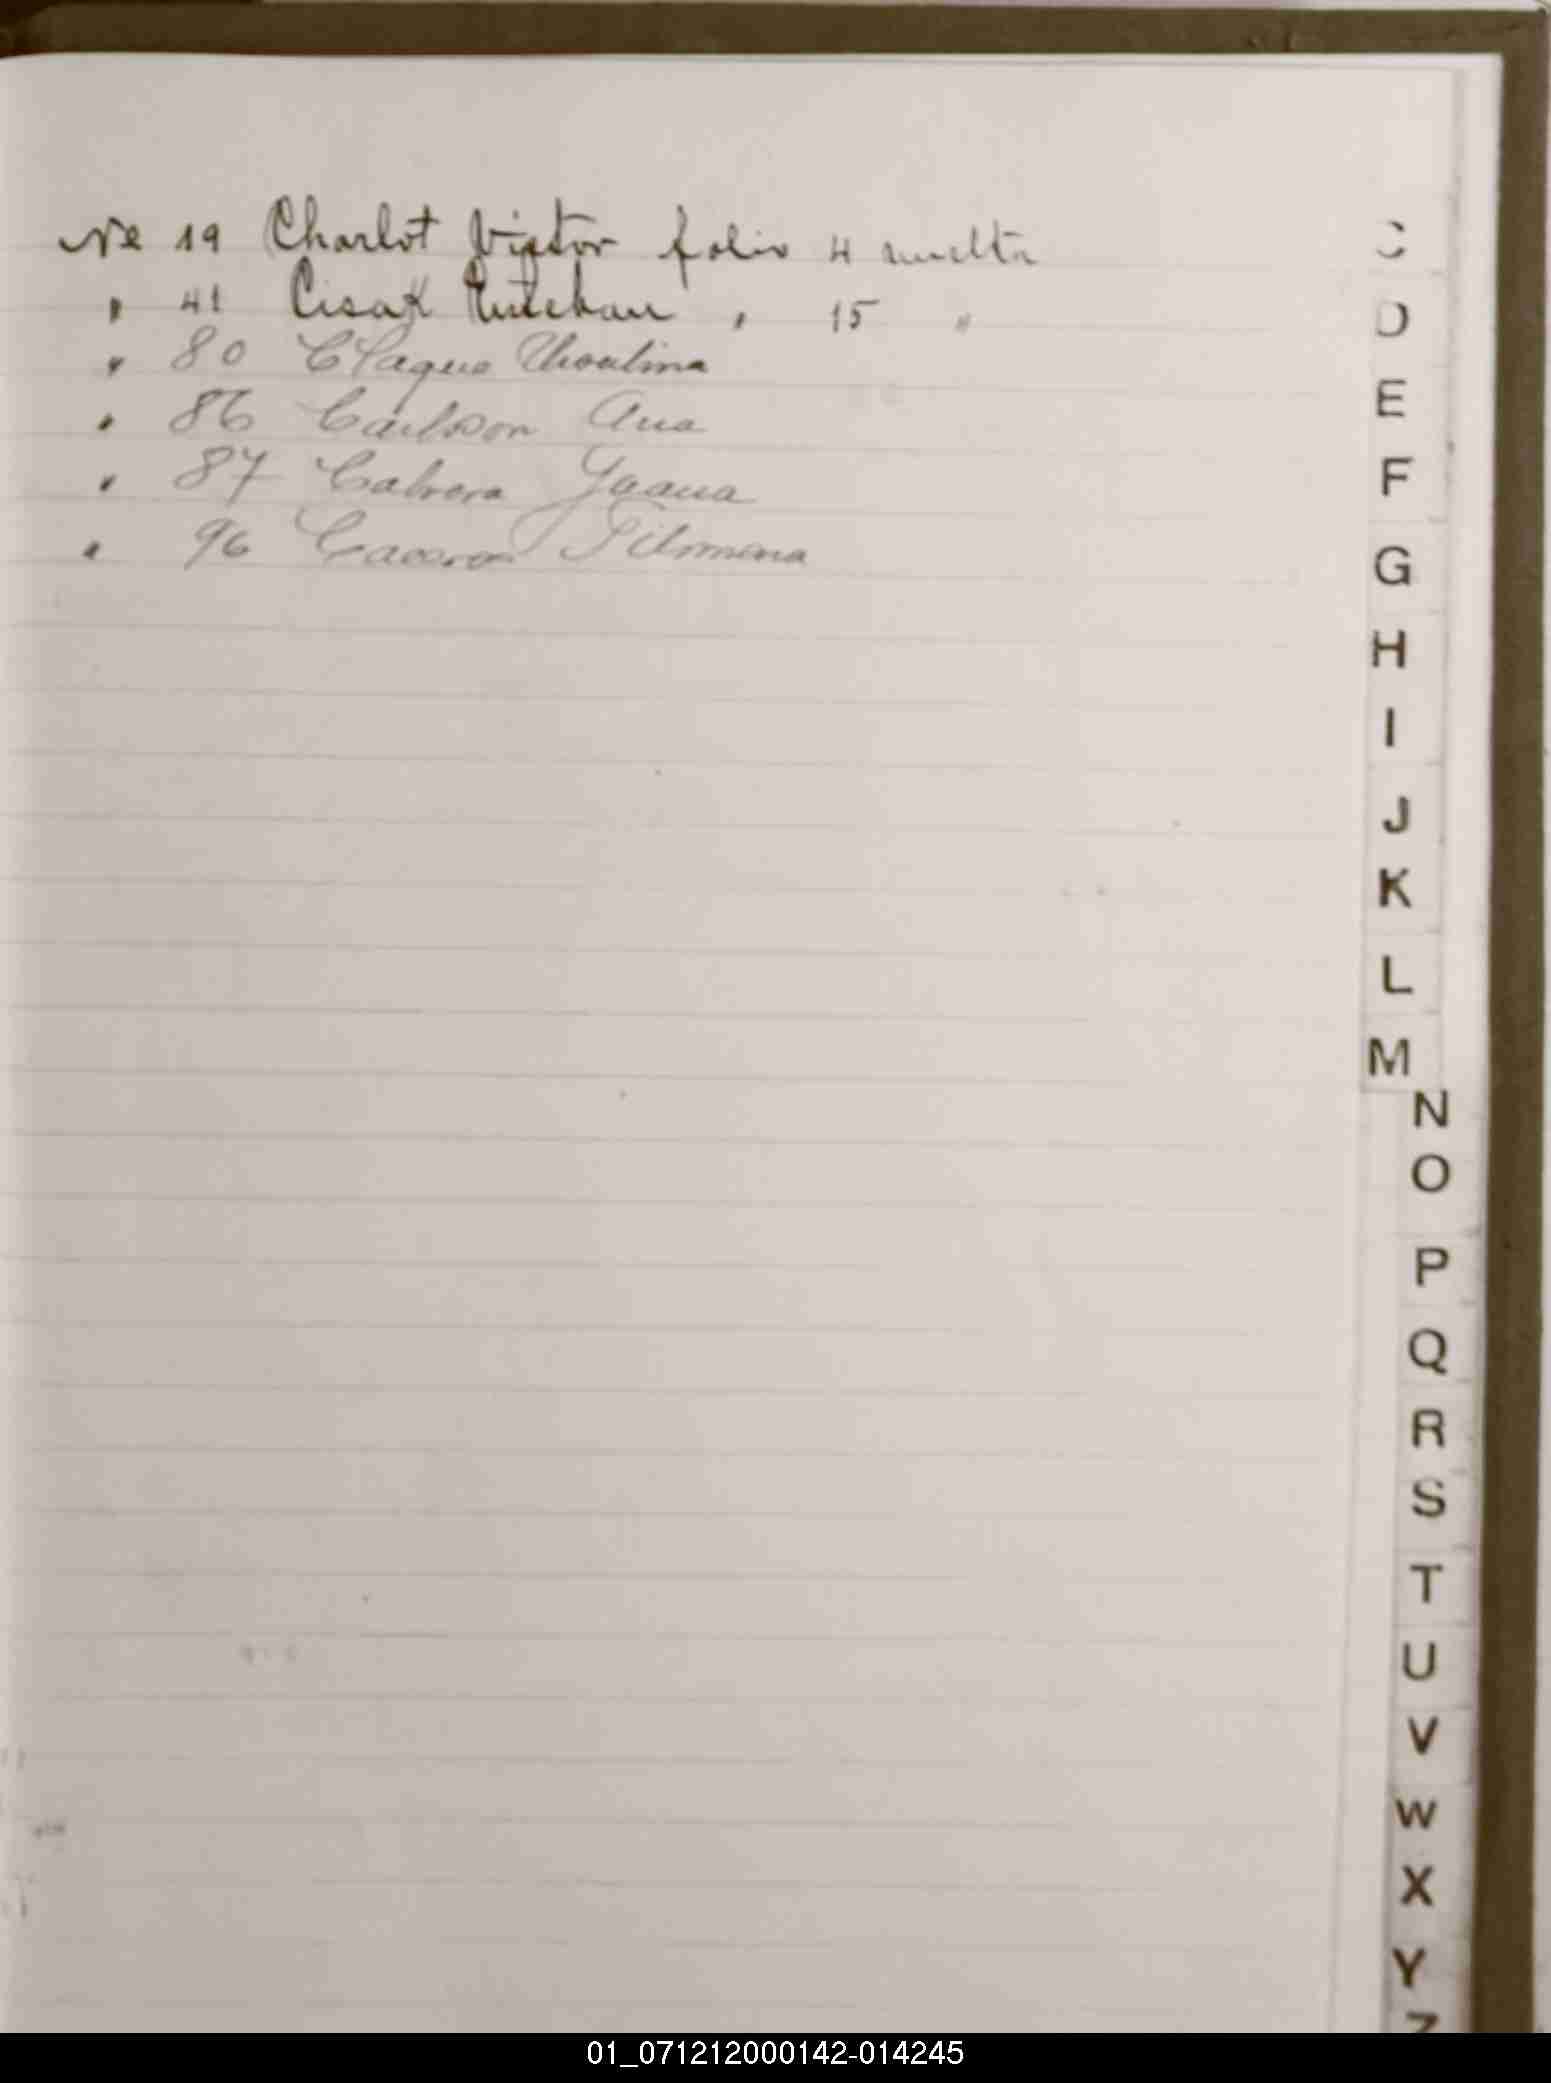 Nº 19 Charlot Victor folio 4 vuelta
" 41 Cisak Esteban " 15 "
" 80 Claque Paulina
" 86 Carlson Ana
" 87 Cabrera Juana
" 96 Caceres Filomena
C
D
E
F
G
H
I
J
K
L
M
N
O
P
Q
R
S
T
U
V
W
X
Y
Z
01_071212000142-014245